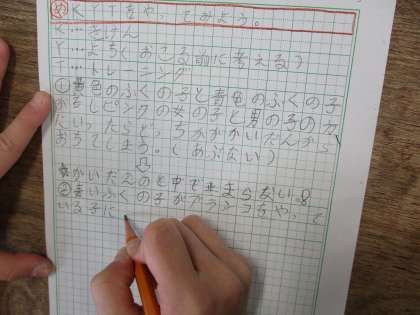 め KYTをやってみよう。
K…きけん
Y…よちく(おこる前に考える)
T…トレーニング
①黄色のふくの子と青色のふくの子
がおしピンクの女の子と男の子の方
だいったらどっちかがかいだんから
おちてしまう。(あぶない)
⇩
☆かいだんのと中で止まらない。
②青いふくの子がブランコをやって
いる子に